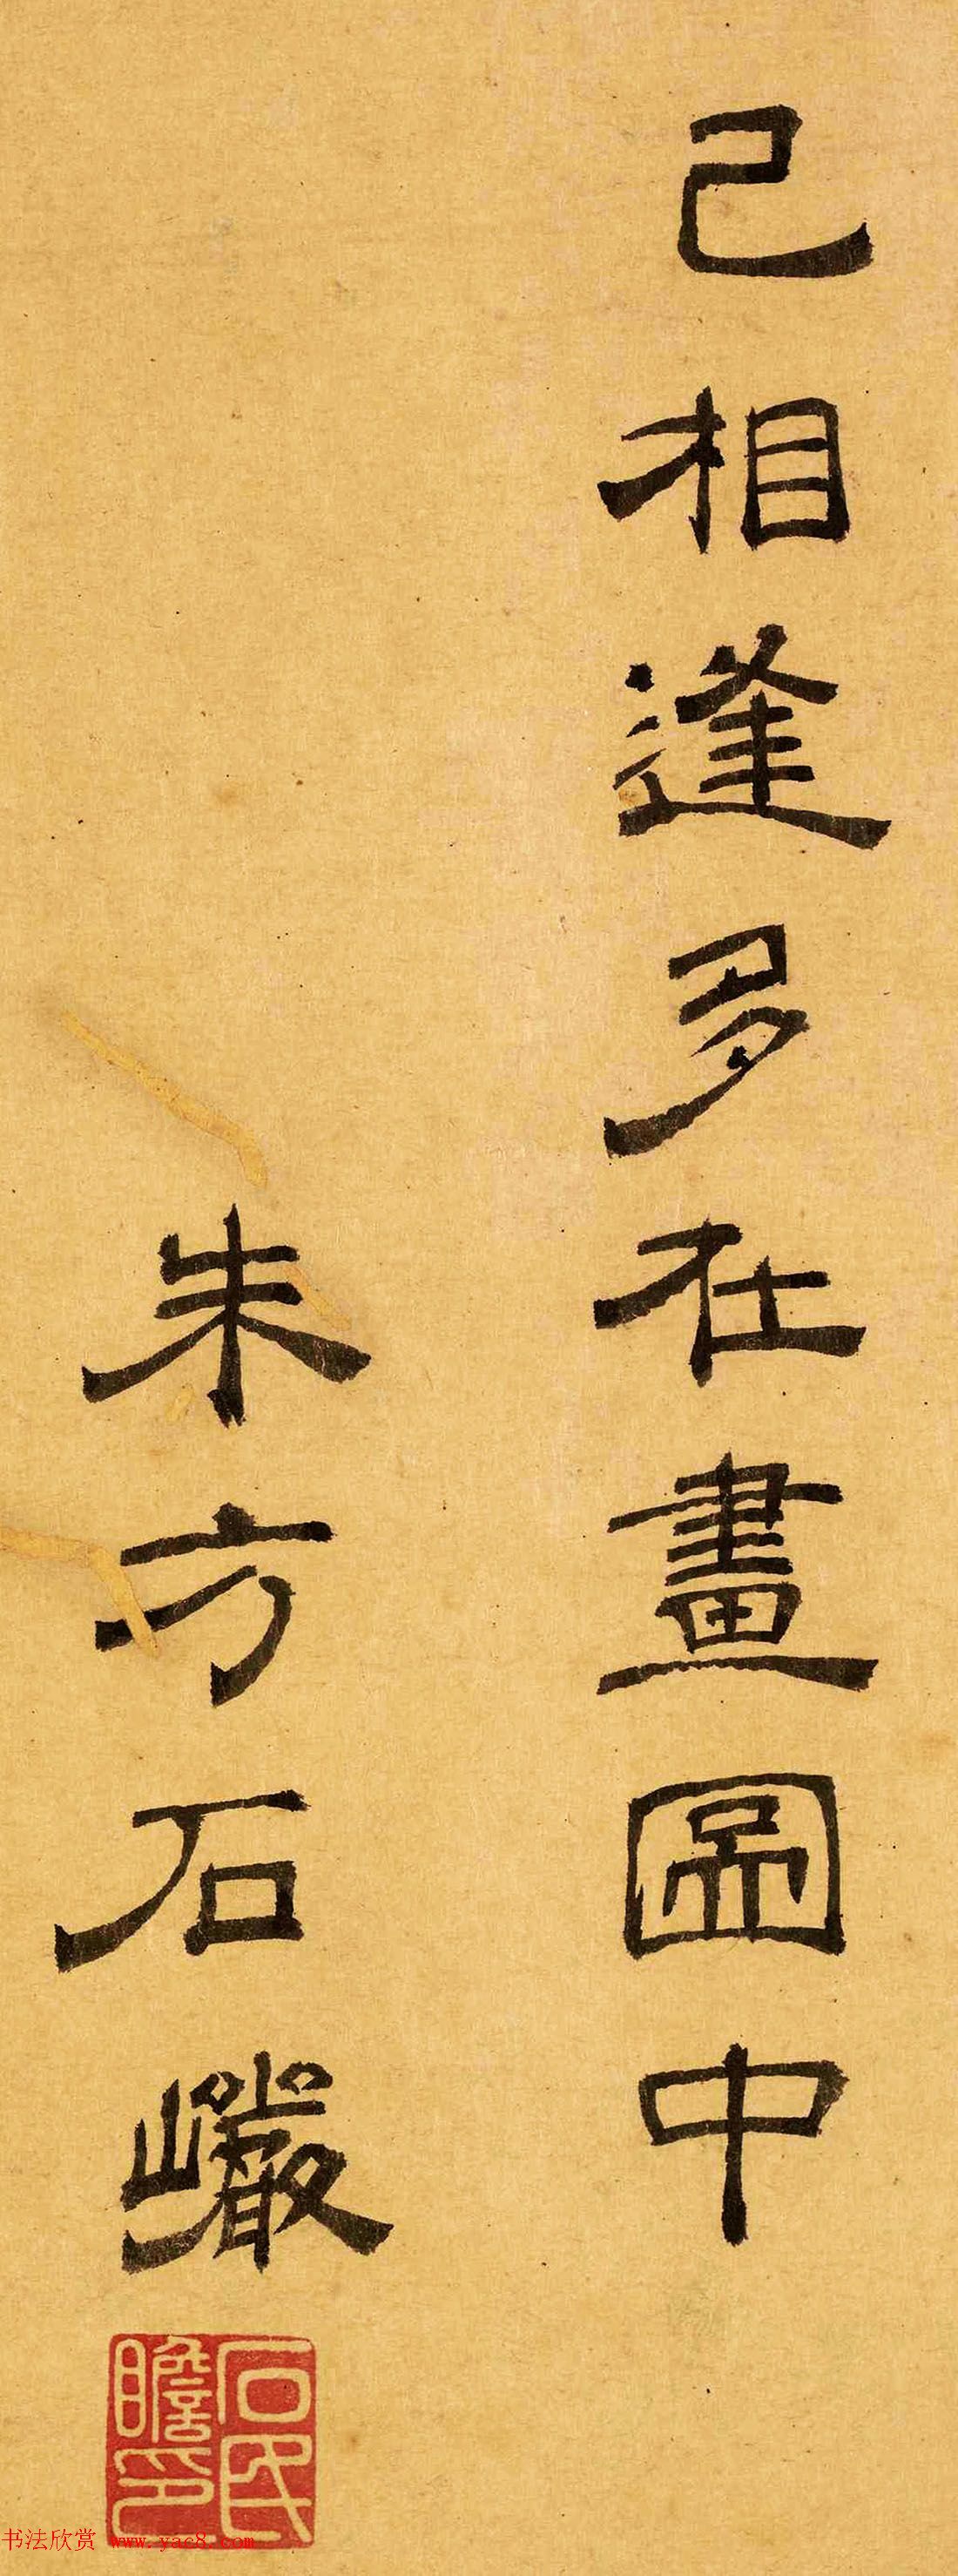 已相逢多在畫圖中
朱方石巖
石氏
瞻印
书法欣赏 www.yac8.com